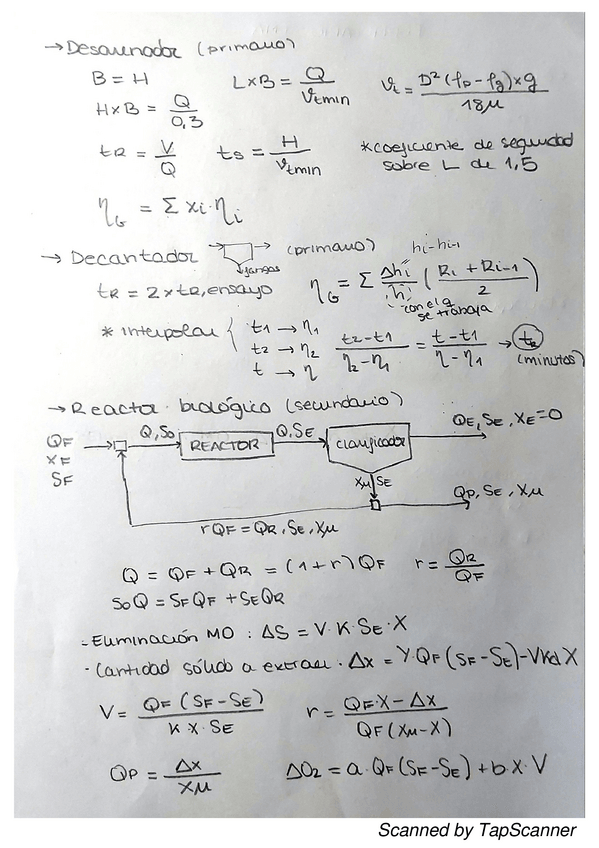 → Desarenador (primario)
B = H    L×B = Q/Vtmin    Vt = D²(ρp-ρg)×g/18μ
H×B = Q/0,3
tR = V/Q    ts = H/Vtmin    *coeficiente de seguridad
sobre L de 1,5
ηG = Σ xi·ηi
→ Decantador (primario)
fangos
hi-hi-1
tR = 2×tR,ensayo    ηG = Σ Δhi/h (Ri + Ri-1/2)
con el q
se trabaja
* interpolar { t1 → η1
t2 → η2    t2-t1/η2-η1 = t-t1/η-η1 → tR
t → η
(minutos)
→ Reactor biológico (secundario)
QF
XF
SF
Q, So
REACTOR
Q, SE
Clarificador
QE, SE, XE=0
Xμ SE
QP, SE, Xμ
rQF = QR, SE, Xμ
Q = QF + QR = (1+r) QF    r = QR/QF
SoQ = SFQF + SEQR
- Eliminación MO : ΔS = V·K·SE·X
· Cantidad sólido a extraer · Δx = Y·QF(SF-SE)-VKdX
V = QF (SF-SE)/K·X·SE    r = QF·X-Δx/QF(Xμ-X)
QP = Δx/Xμ    ΔO2 = a·QF(SF-SE)+b·X·V
Scanned by TapScanner